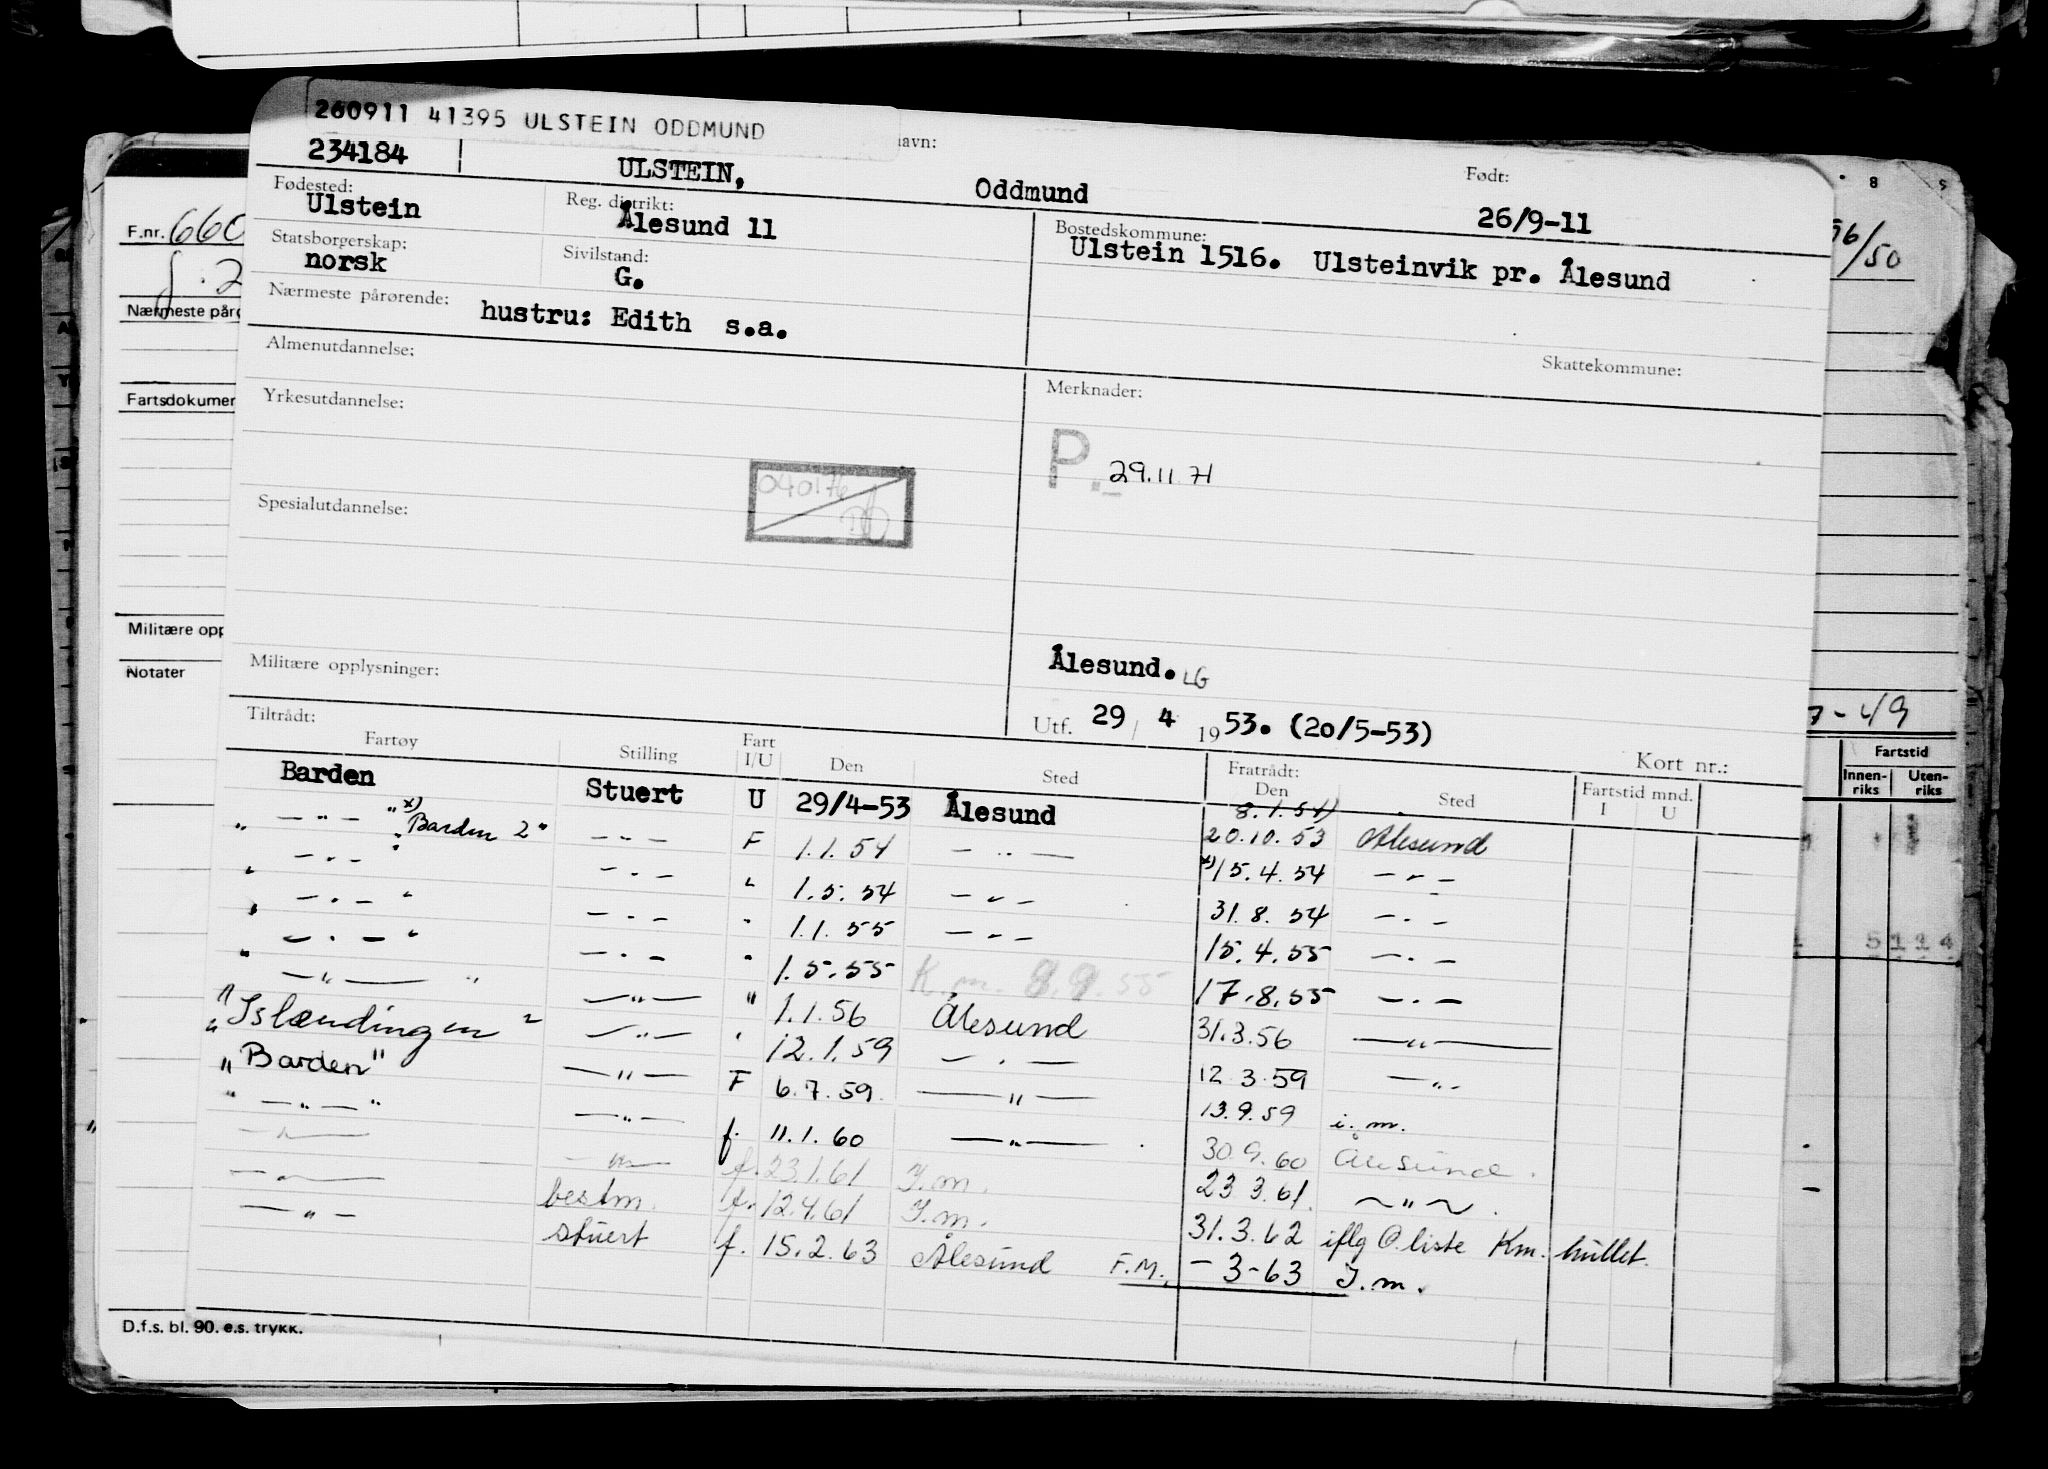 260911 41395 ULSTEIN ODDMUND
234184 ULSTEIN, Oddmund avn: Født: 26/9-11
Fødested: Ulstein Reg. distrikt: Ålesund 11 Bostedskommune: Ulstein 1516. Ulsteinvik pr. Ålesund
Statsborgerskap: norsk Sivilstand: G.
Nærmeste pårørende: hustru: Edith s.a.
Almenutdannelse: Skattekommune:
Yrkesutdannelse: Merknader:
P. 29.11 71
040176
Spesialutdannelse:
Militære opplysninger: Ålesund. LG
Tiltrådt: Utf. 29 / 4 1953. (20/5-53)
Kort nr.:
Fartøy Stilling Fart I/U Den Sted Fratrådt: Den Sted Fartstid mnd. I U
Barden Stuert U 29/4-53 Ålesund 8.1.54) 20.10.53 Ålesund
— " — " x) Barden 2" — " — F 1.1.54 — " — x) 15.4.54 — " —
" — " — " — " — " 1.5.54 — " — 31.8.54 — " —
" — " — " — " — " 1.1.55 — " — 15.4.55 — " —
" — " — " — " — " 1.5.55 K.m. 8.9.55 17.8.55 — " —
" — " — " — " — " 1.1.56 Ålesund 31.3.56 — " —
"Islændingen" — " — " 12.1.59 — " — 12.3.59 — " —
"Barden" — " — F 6.7.59 — " — 13.9.59 i.m.
" — " — " — " — f. 11.1.60 — " — 30.9.60 Ålesund.
— " — — " — f. 23.1.61 I.m. 23.3.61. — " — .
— " — bestm. f. 12.4.61 I.m. 31.3.62 iflg O.liste Km. hullet.
— " — stuert f. 15.2.63 Ålesund F.M. – 3-63 I.m.
F.nr. 660
Nærmeste pårø
Fartsdokumen
Militære opp
Notater
D.f.s. bl. 90. e.s. trykk.
8 9
56/50
7-49
Fartstid
Innen-riks Uten-riks